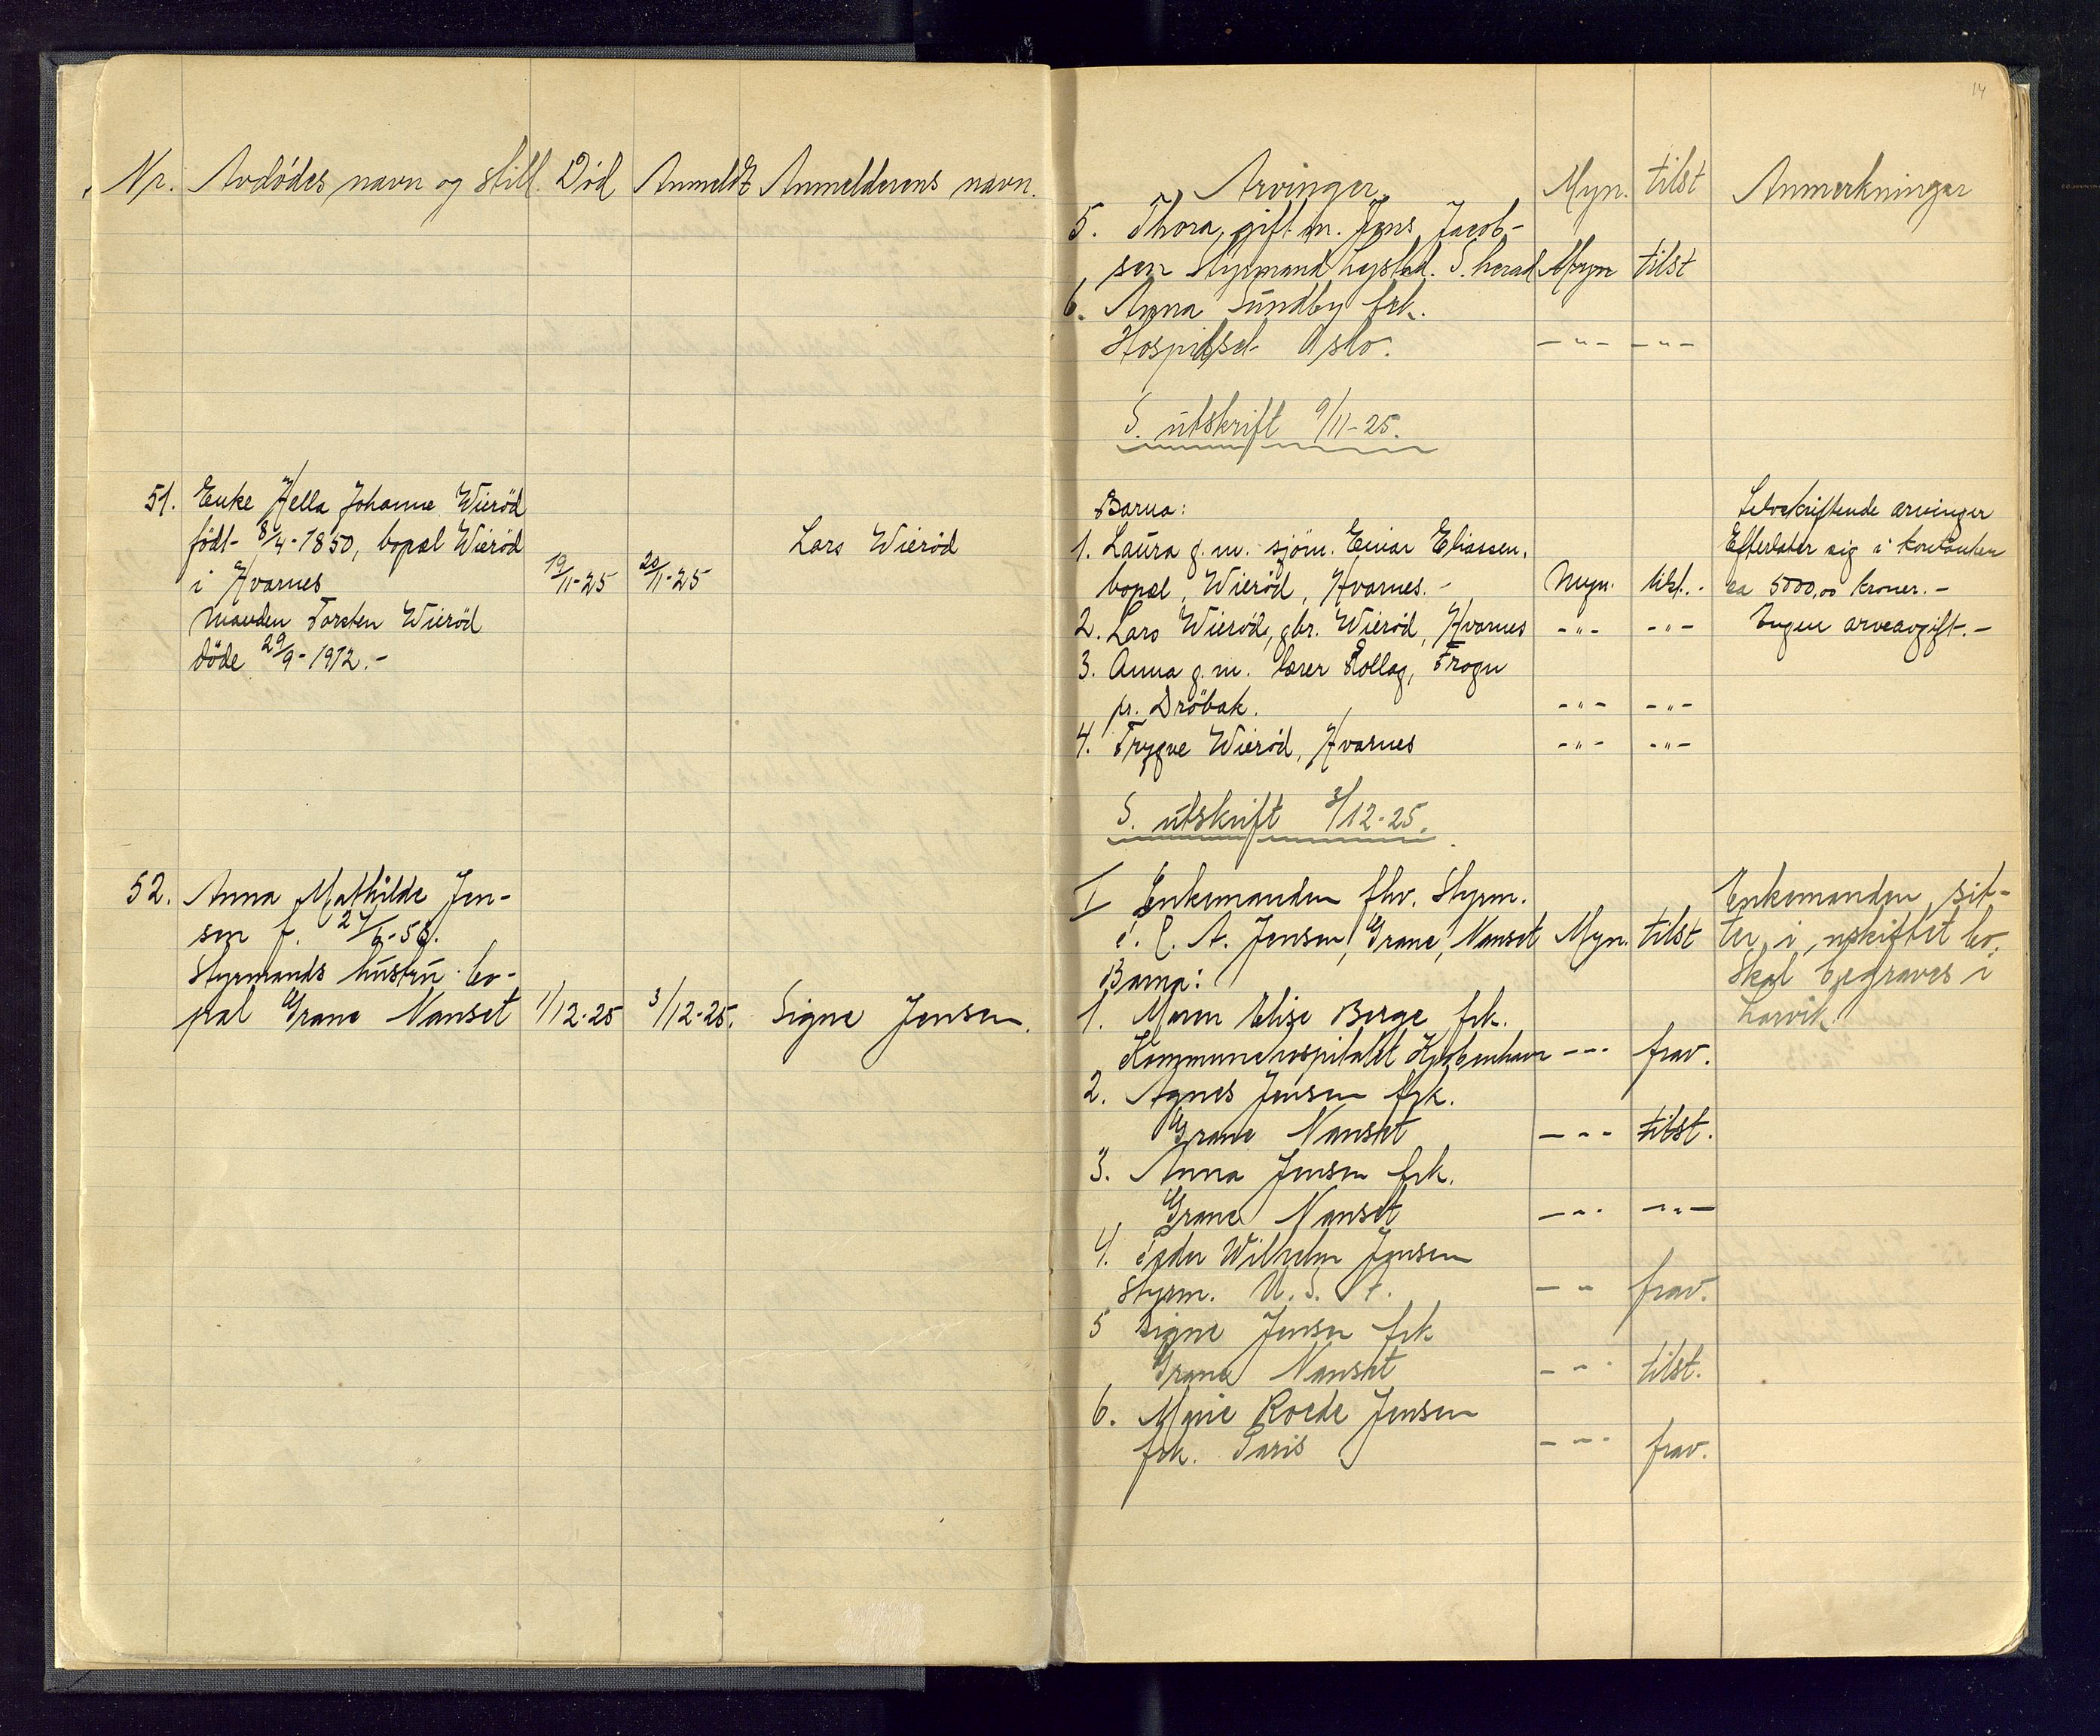 14
Nr. Avdødes navn og still. Død Anmeldt Anmelderens navn.
Arvinger Myn. tilst Anmerkninger
5. Thora, gift m. Jens Jacob-
sen Styrmand Lystad. S. herad Myn tilst
6. Anna Sundby frk.
Hospitset Oslo. -"- -"-
S. utskrift 9/11-25.
51. Enke Hella Johanne Wierød
født 8/4-1850, bopæl Wierød
i Hvarnes 19/11-25 20/11-25 Lars Wierød
Manden Torsten Wierød
døde 29/9-1912.-
Barna:
1. Laura g. m. sjøm. Einar Eliassen,
bopæl, Wierød, Hvarnes.- Myn. tilst.-
2. Lars Wierød, gbr. Wierød, Hvarnes -"- -"-
3. Anna g. m. lærer Rollag, Frogn
pr. Drøbak. -"- -"-
4. Trygve Wierød, Hvarnes -"- -"-
Selvskiftende arvinger
Efterlater sig i kontanter
ca 5000,00 kroner.-
Ingen arveavgift.-
S. utskrift 3/12-25.
52. Anna Mathilde Jen-
sen f. 27/6-56.
Styrmands hustru bo-
pæl Grane Nanset 1/12-25 3/12-25. Signe Jensen.
I Enkemanden fhv. Styrm.
C. A. Jensen, Grane, Nanset Myn. tilst
Barna:
1. Maren Elise Berge frk.
Kommunehospitalet Kjøbenhavn -"- frav.
2. Agnes Jensen frk.
Grane Nanset -"- tilst.
3. Anna Jensen frk.
Grane Nanset -"- -"-
4. Peder Wilhelm Jensen
Styrm. U. S. A. -"- frav.
5 Signe Jensen frk
Grane Nanset -"- tilst.
6. Roede Jensen
frk. Paris -"- frav.
Enkemanden sit-
ter i uskiftet bo.
Skal begraves i
Larvik.